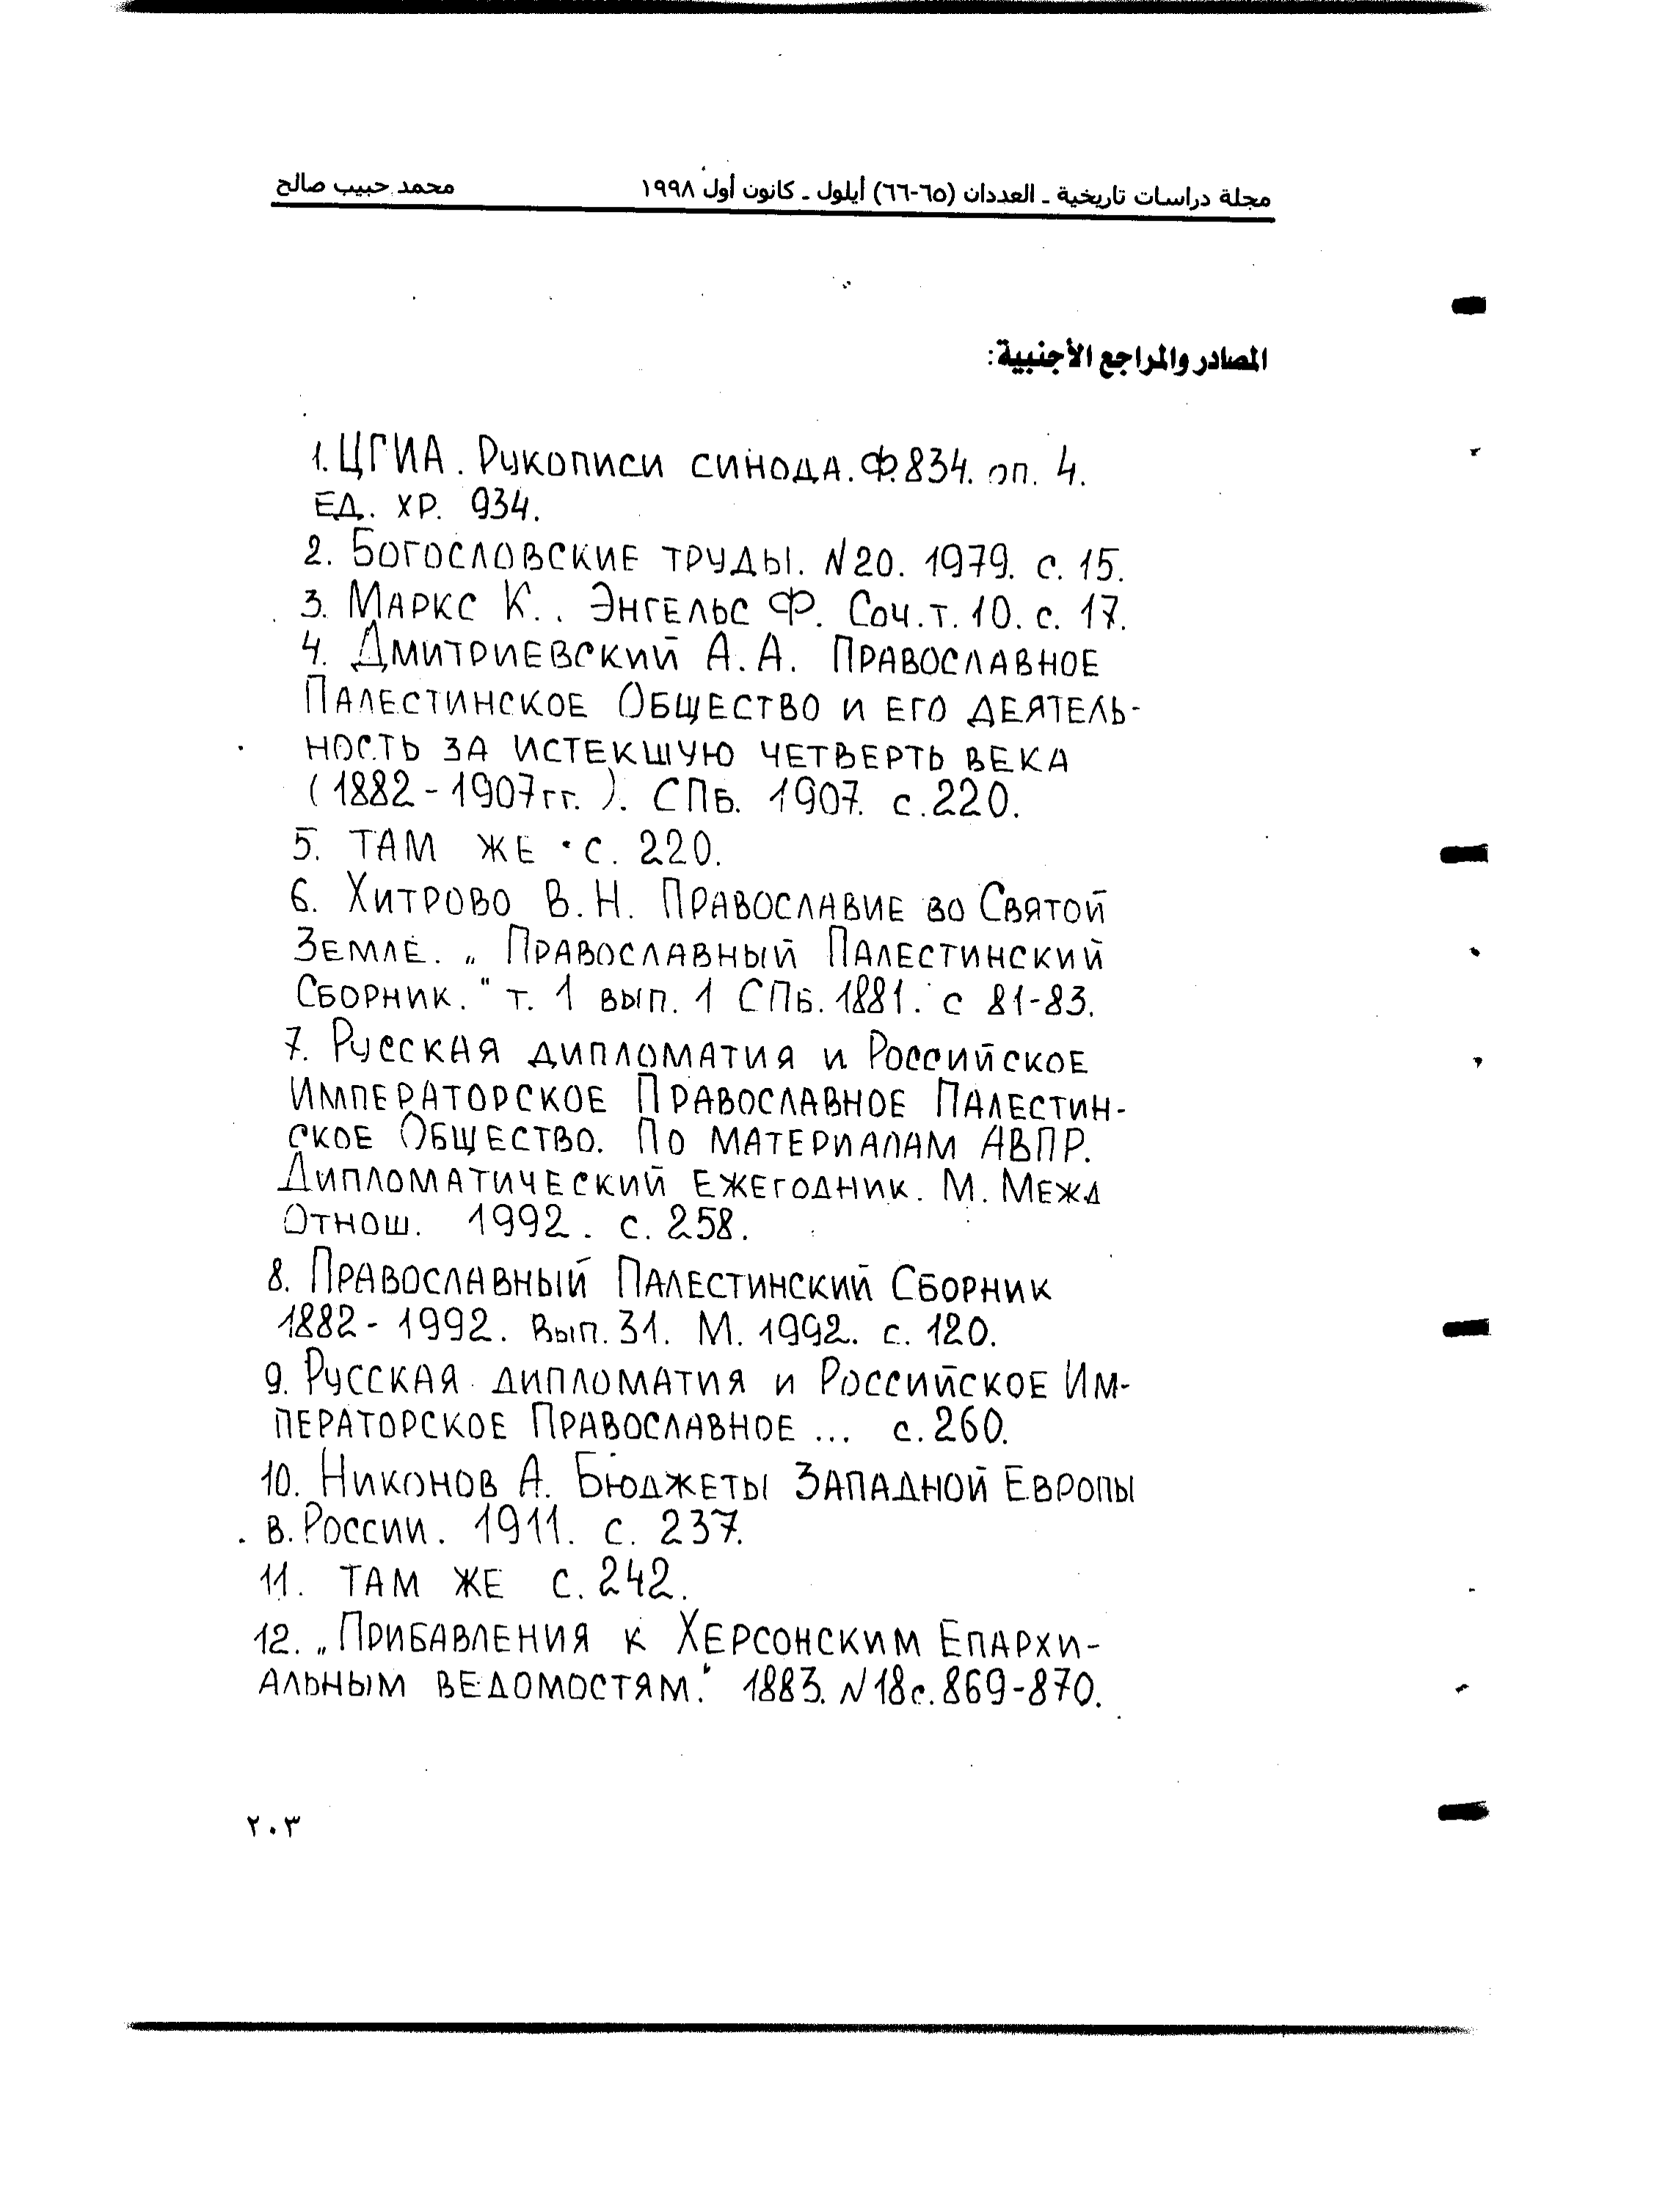 مجلة دراسات تاريخية ـ العددان (٦٥-٦٦) أيلول ـ كانون أول ١٩٩٨ محمد حبيب صالح
المصادر والمراجع الأجنبية:
1. ЦГИА. Рукописи синода. Ф.834. оп. 4.
ед. хр. 934.
2. Богословские труды. N20. 1979. с. 15.
3. Маркс К.. Энгельс Ф. Соч. т. 10. с. 17.
4. Дмитриевский А.А. Православное
Палестинское Общество и его деятель-
ность за истекшую четверть века
(1882-1907гг.). СПб. 1907. с.220.
5. Там же · с. 220.
6. Хитрово В.Н. Православие во Святой
Земле. „Православный Палестинский
Сборник." т. 1 вып. 1 СПб. 1881. с 81-83.
7. Русская дипломатия и Российское
Императорское Православное Палестин-
ское Общество. По материалам АВПР.
Дипломатический ежегодник. М. Межд
Отнош. 1992. с. 258.
8. Православный Палестинский Сборник
1882-1992. Вып. 31. М. 1992. с. 120.
9. Русская дипломатия и Российское Им-
ператорское Православное ... с.260.
10. Никонов А. Бюджеты Западной Европы
в. России. 1911. с. 237.
11. Там же с.242.
12. „Прибавления к Херсонским Епархи-
альным ведомостям." 1883. N18 с.869-870.
٢٠٣